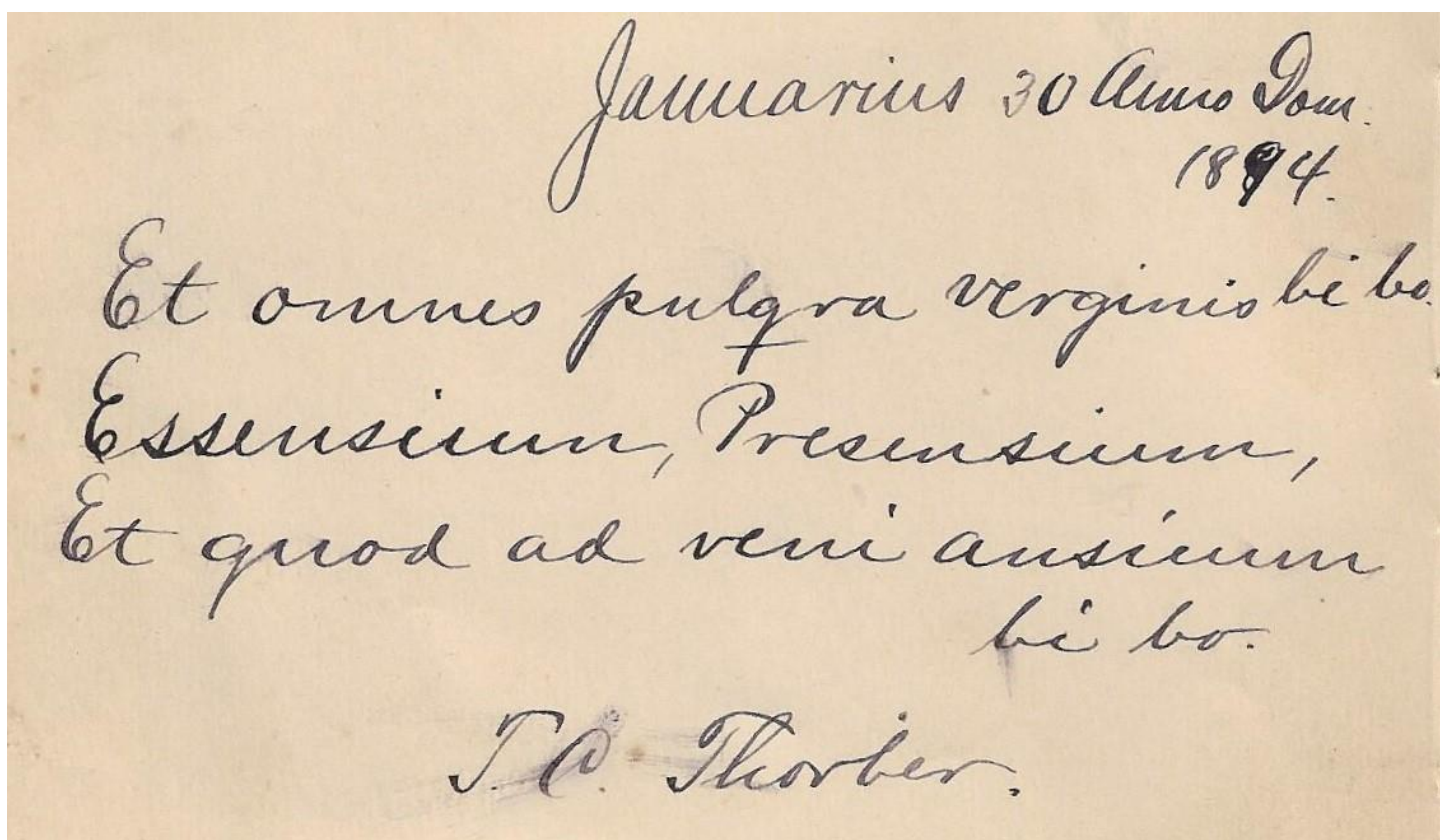 Januarius 30 Anno Dom.
1894.
Et omnes pulqra verginis bi bo.
Essensium, Presensium,
Et quod ad veni ansium
bi bo.
T. C. Thorber.